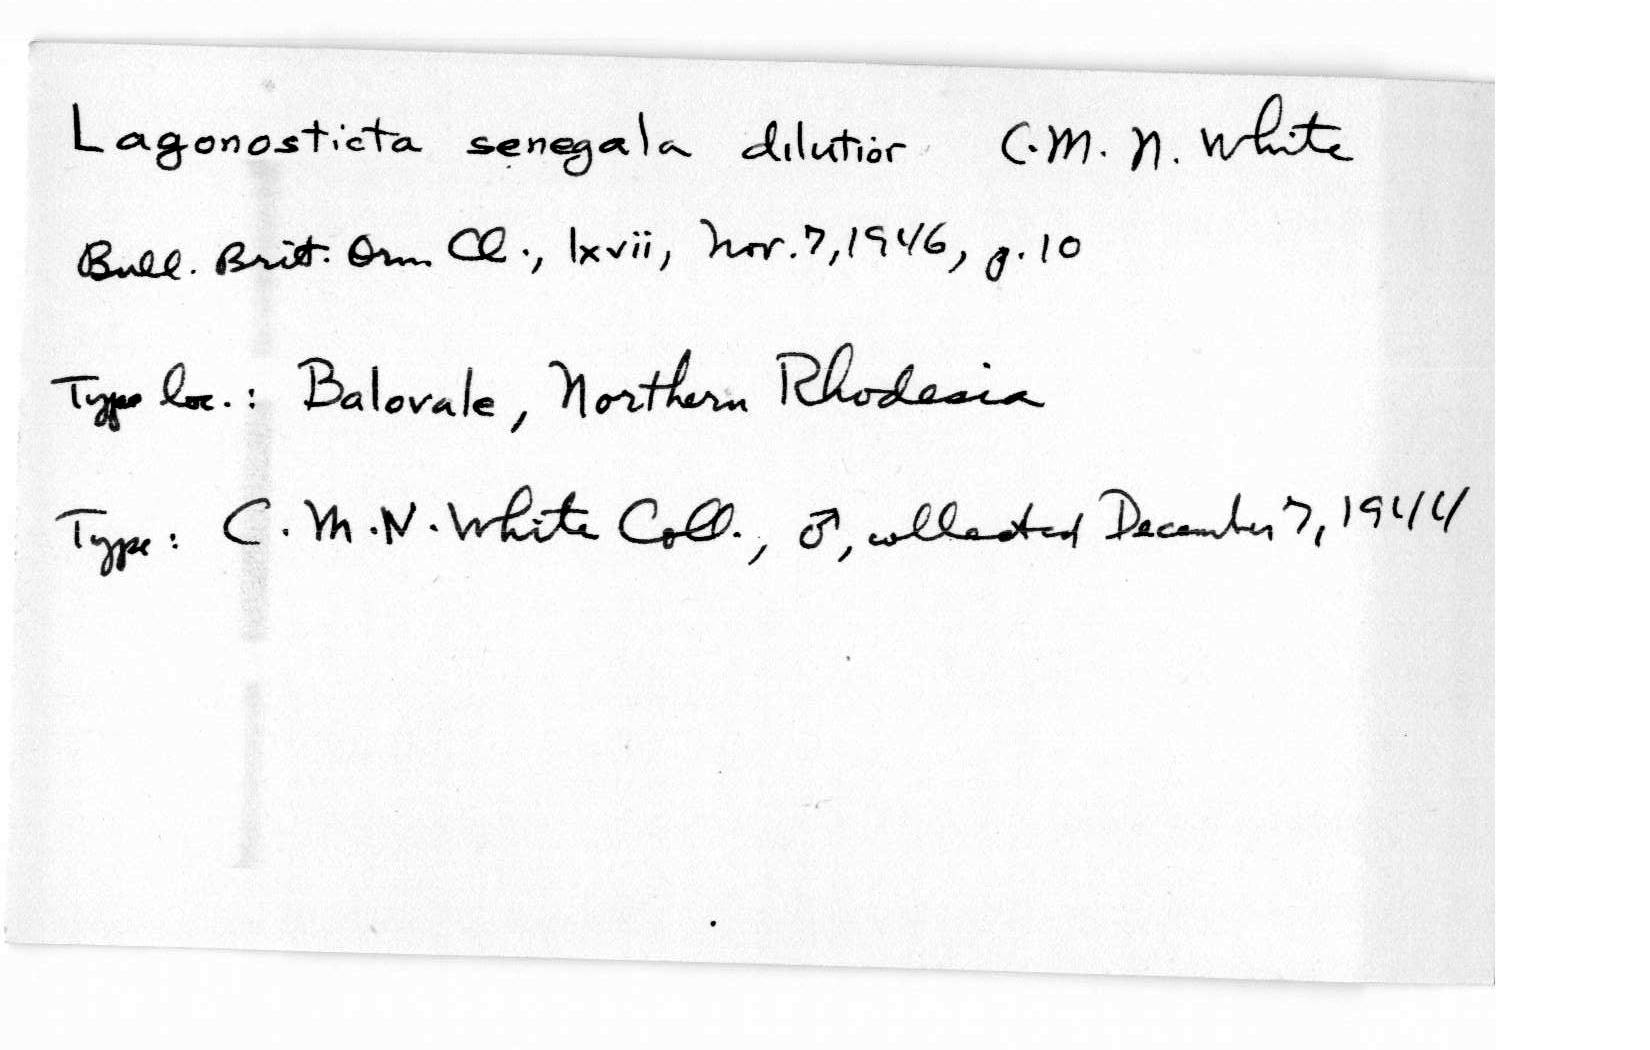 Lagonosticta senegala dilutior C.M.N. White
Bull. Brit. Orn. Cl., lxvii, Nov. 7, 1946, p. 10
Type loc.: Balovale, Northern Rhodesia
Type: C.M.N. White Coll., ♂, collected December 7, 1944